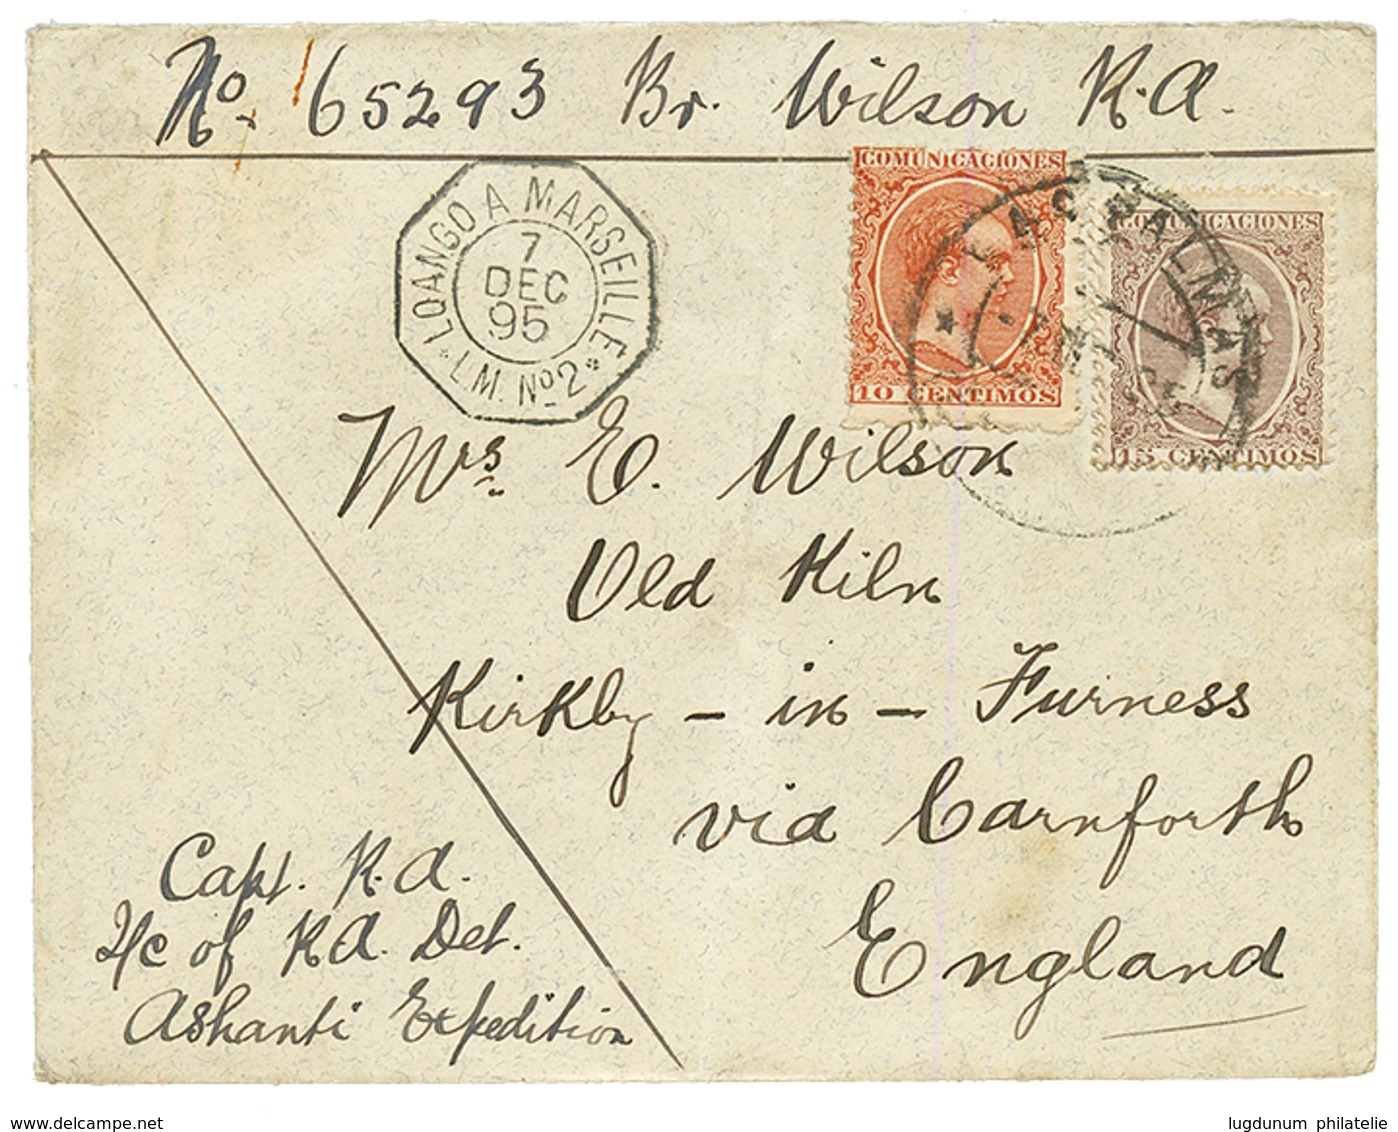 No. 65293 Br. Wilson R.A.
COMUNICACIONES
10 CENTIMOS
COMUNICACIONES
15 CENTIMOS
LAS PALMAS
LOANGO A MARSEILLE
7
DEC
95
* L.M. No 2 *
Mrs E. Wilson
Old Kiln
Kirkby - in - Furness
via Carnforth
England
Capt. R.A.
I/c of R.A. Det.
Ashanti Expedition
www.delcampe.net
lugdunum philatelie